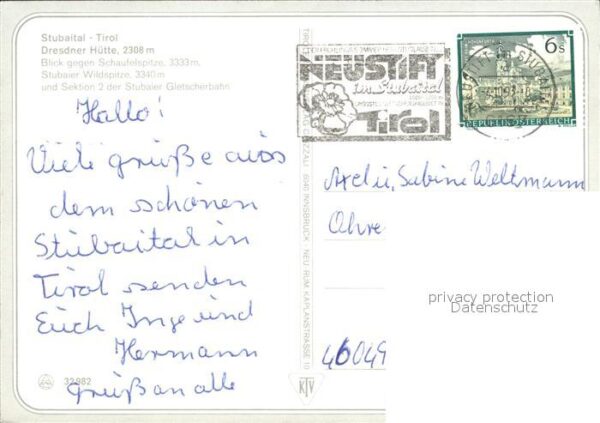 Stubaital - Tirol
Dresdner Hütte, 2308 m
Blick gegen Schaufelspitze, 3333 m,
Stubaier Wildspitze, 3340 m
und Sektion 2 der Stubaier Gletscherbahn
Hallo!
Viele grüße aus
dem schönen
Stubaital in
Tirol senden
Euch Inge und
Hermann
grüßan alle
32982
NEUSTIFT
im Stubaital
Tirol
6 s
REPUBLIK ÖSTERREICH
6040 INNSBRUCK - NEU-RUM, KAPLANSTRASSE 10
KTV
Axel u. Sabine Weltmann
Ohre
46049
privacy protection
Datenschutz